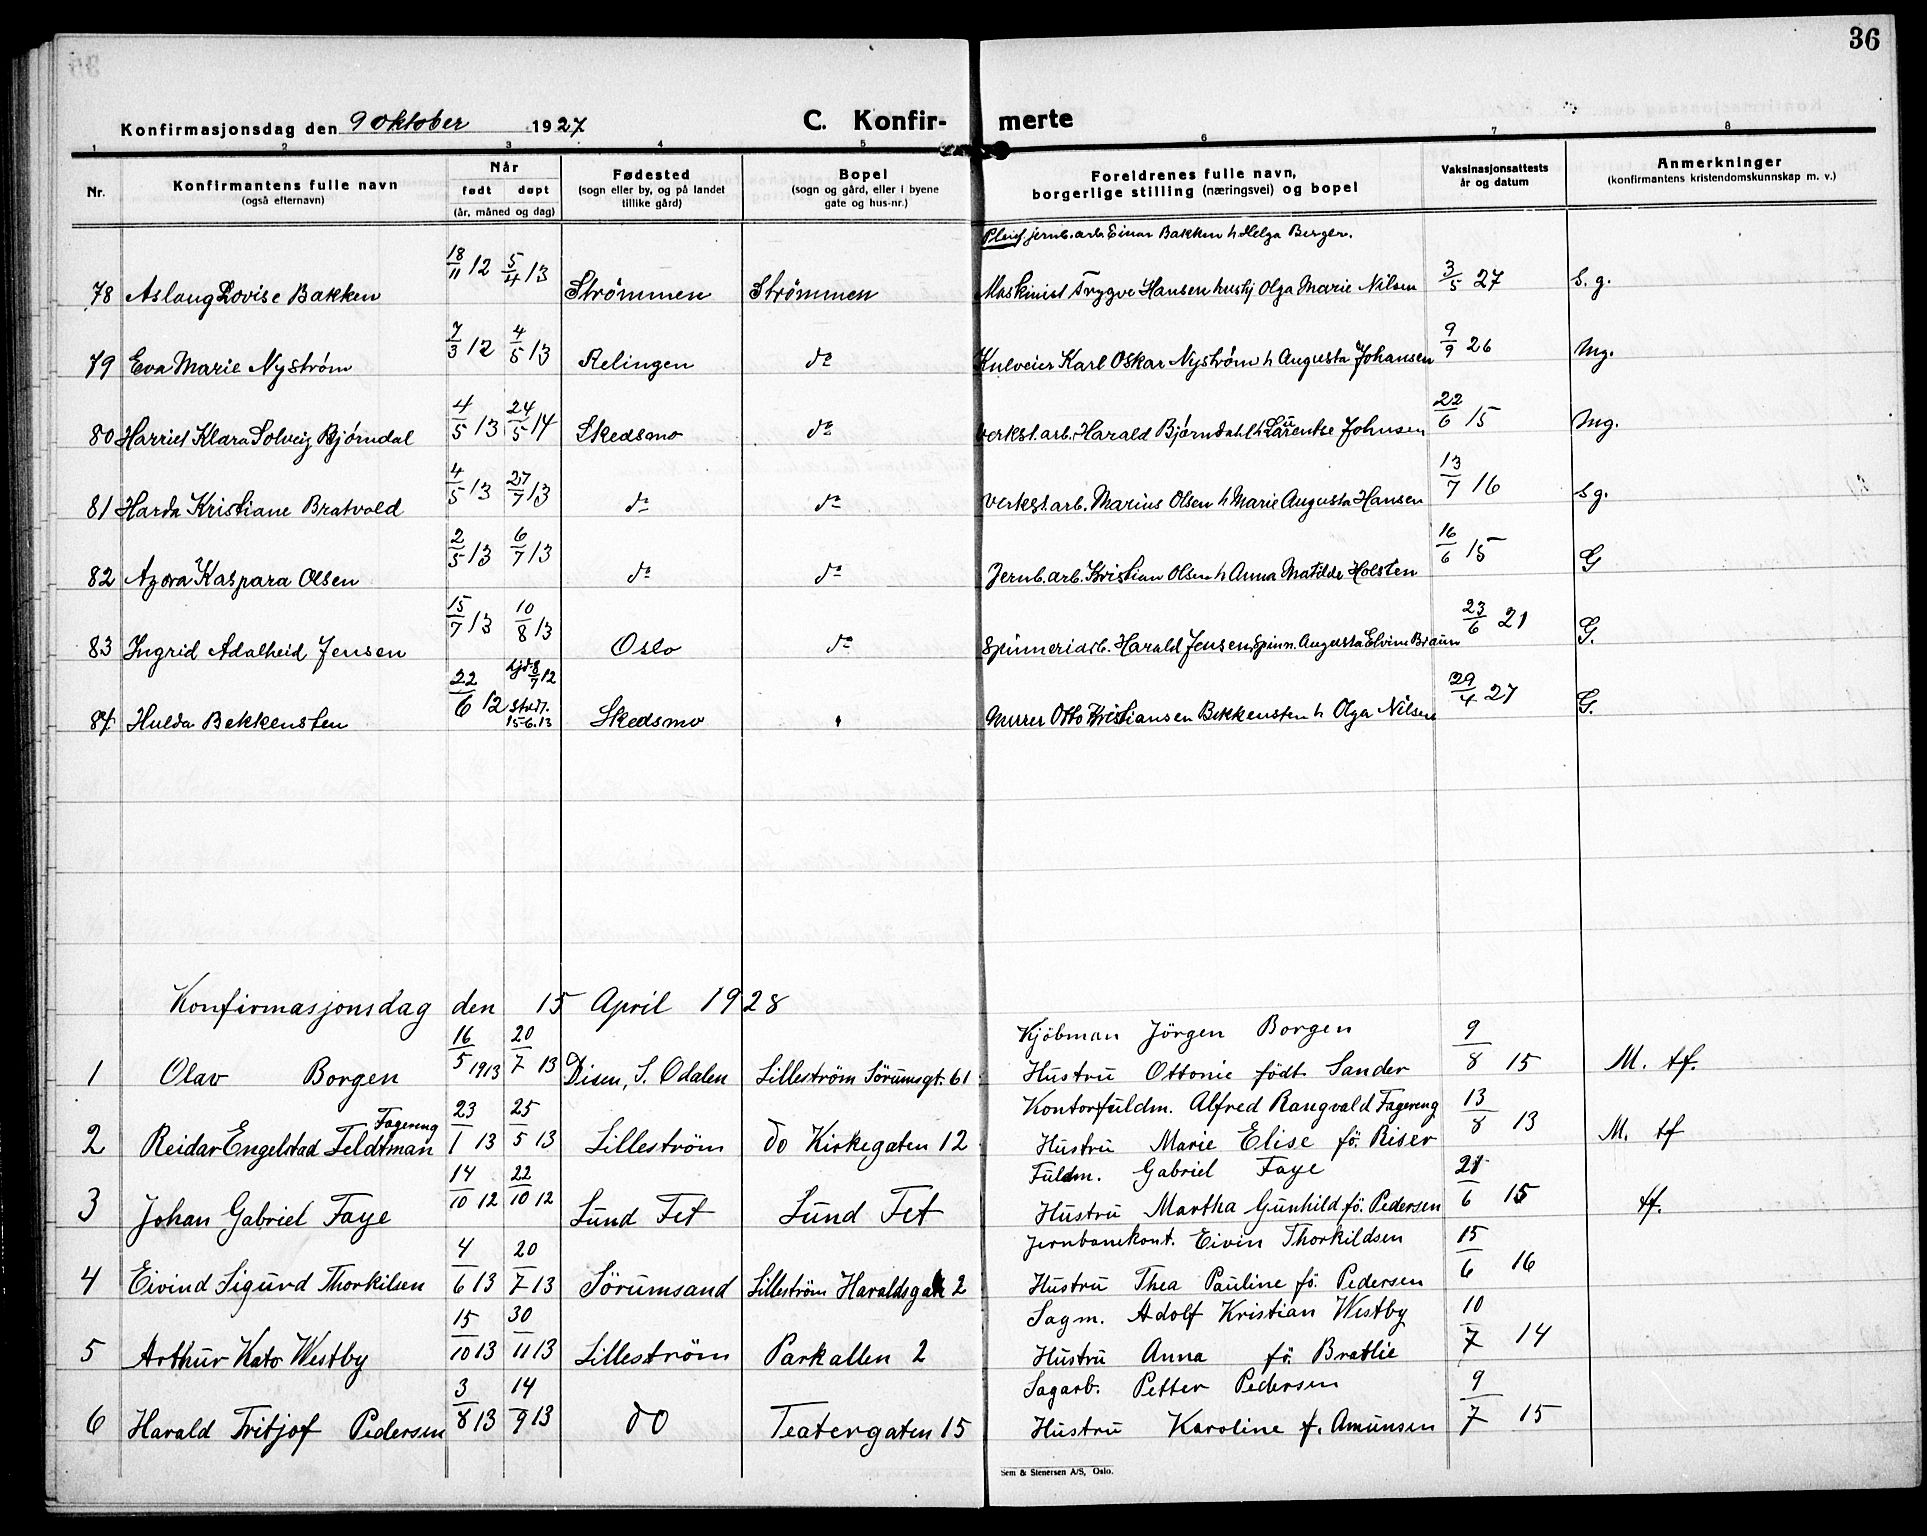 36
Konfirmasjonsdag den 9 Oktober 1927
C. Konfir- merte
1 2 3 4 5 6 7 8
Nr. Konfirmantens fulle navn (også efternavn) Når født døpt (år, måned og dag) Fødested (sogn eller by, og på landet tillike gård) Bopel (sogn og gård, eller i byene gate og hus-nr.) Foreldrenes fulle navn, borgerlige stilling (næringsvei) og bopel Vaksinasjonsattests år og datum Anmerkninger (konfirmantens kristendomskunnskap m. v.)
Pleief. jernb.arb. Einar Bakken h Helga Berger.
78 Aslaug Lovise Bakken 18/11 12 5/4 13 Strømmen Strømmen Maskinist Trygve Hansen hustj Olga Marie Nilsen 3/5 27 S. g.
79 Eva Marie Nyström 7/3 12 4/5 13 Relingen do Kulveier Karl Oskar Nyström h Augusta Johansen 9/9 26 Mg.
80 Harriet Klara Solveig Bjørndal 4/5 13 24/5 14 Skedsmo do Verkst.arb. Harald Bjørndahl h Laurentse Johnsen 22/6 15 Mg.
81 Harda Kristiane Bratvold 4/5 13 27/7 13 do do Verkst.arb. Marius Olsen h Marie Augusta Hansen 13/7 16 S g.
82 Agora Kaspara Olsen 2/5 13 6/7 13 do do Jernb.arb. Kristian Olsen h Anna Matilde Holsten 16/6 15 G
83 Ingrid Adalheid Jensen 15/7 13 10/8 13 Oslo do Spinneriarb. Harald Jensen, Spinn. Augusta Elvine Braun 23/6 21 G.
84 Hulda Bekkensten 22/6 12 hjd. 8/7 12 stadf. 15-6.13 Skedsmo " Murer Otto Kristiansen Bekkensten h Olga Nilsen 29/4 27 G.
Konfirmasjonsdag den 15 April 1928
Kjöbman Jörgen Borgen
1 Olav Borgen 16/5 1913 20/7 13 Disen, S. Odalen Lilleström Sörumsgt. 61 Hustru Ottonie födt Sander 9/8 15 M. tf.
Fagereng Kontorfuldm. Alfred Rangvald Fagereng
2 Reidar Engelstad Feldtman 23/1 13 25/5 13 Lilleström do Kirkegaten 12 Hustru Marie Elise fö. Riser 13/8 13 M. tf
Fuldm. Gabriel Faye
3 Johan Gabriel Faye 14/10 12 22/10 12 Lund Fet Lund Fet Hustru Martha Gunhild fö. Pedersen 21/6 15 tf.
Jernbanekont. Eivin Thorkildsen
4 Eivind Sigurd Thorkilsen 4/6 13 20/7 13 Sörumsand Lilleström Haraldsgate 2 Hustru Thea Pauline fö. Pedersen 15/6 16
Sagm. Adolf Kristian Westby
5 Arthur Kato Westby 15/10 13 30/11 13 Lilleström Parkallen 2 Hustru Anna fö. Bratlie 10/7 14
Sagarb. Petter Pedersen
6 Harald Fritjof Pedersen 3/8 13 14/9 13 do Teatergaten 15 Hustru Karoline f. Amunsen 9/7 15
Sem & Stenersen A/S, Oslo.